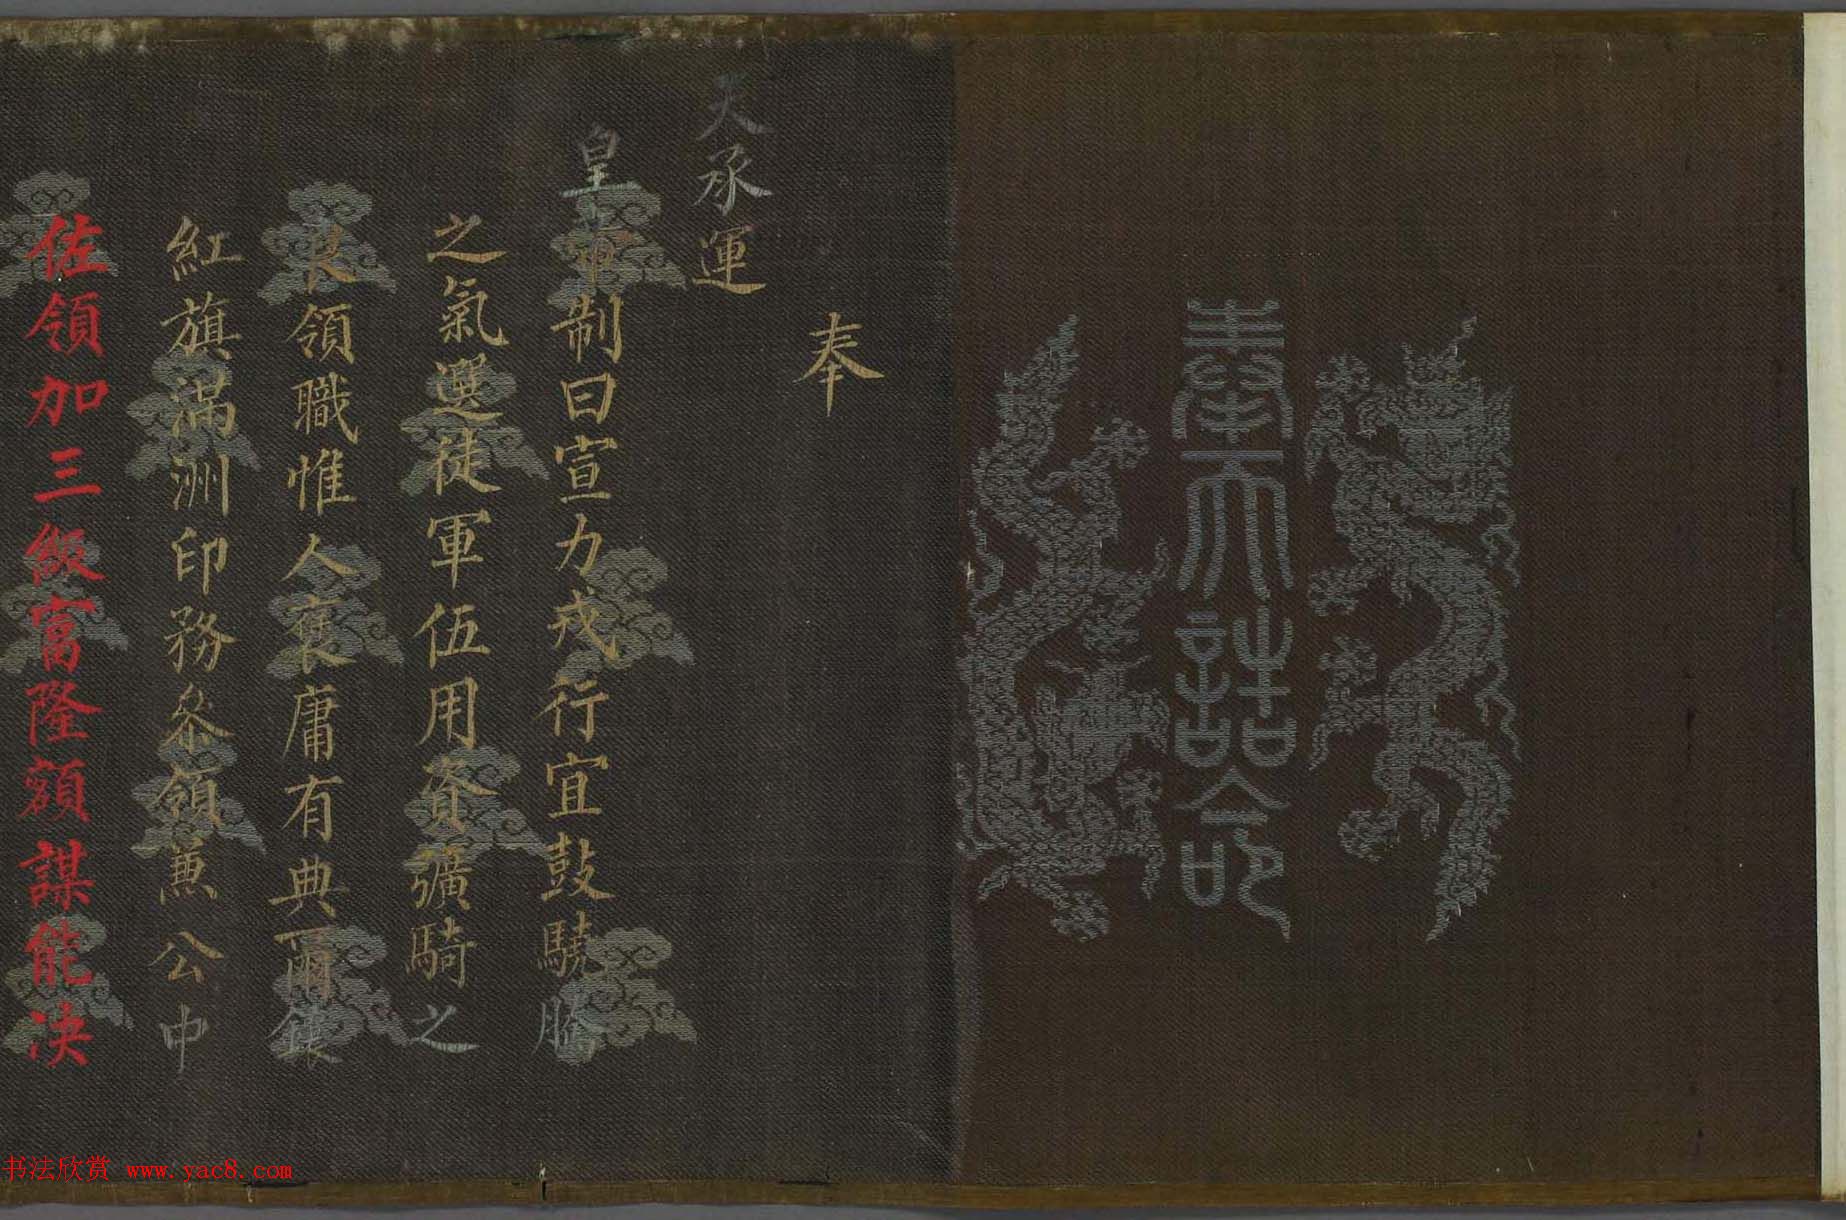 奉天誥命
奉
天承運
皇帝制曰宣力戎行宜鼓驍騰
之氣選徒軍伍用資彍騎之
良領職惟人褒庸有典爾鑲
紅旗滿洲印務叅領兼公中
佐領加三級富隆額謀能决
书法欣赏 www.yac8.com